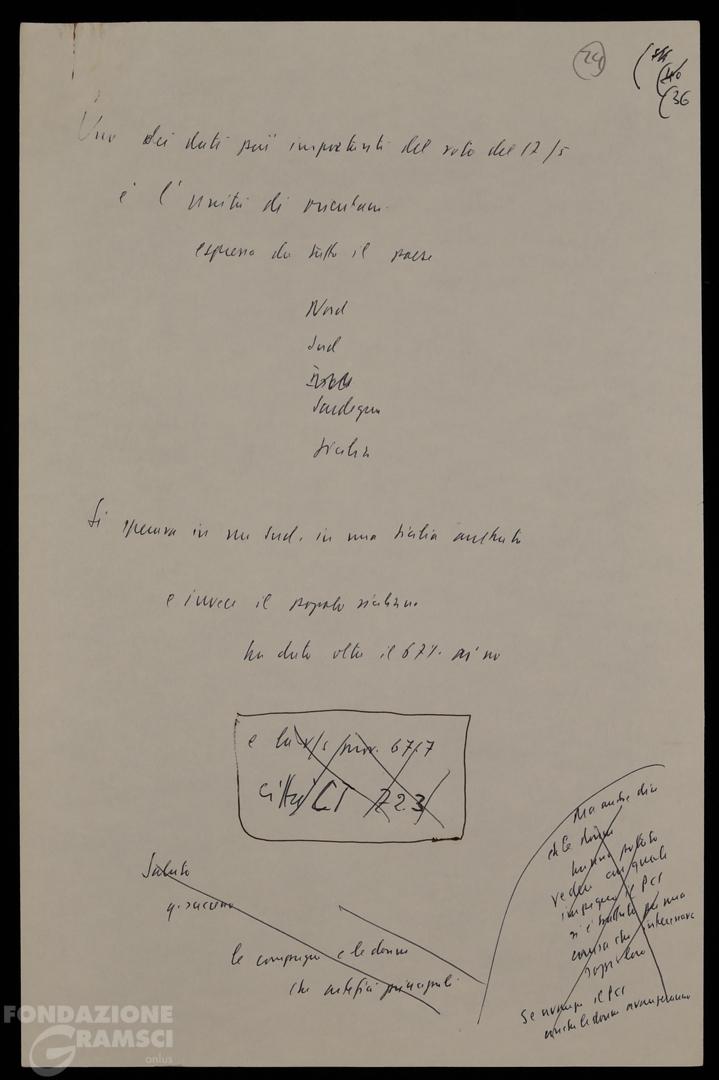 24
36
Uno dei dati più importanti del voto del 17/5
è l'unità di orientam.
espressa da tutto il paese
Nord
Sud
Sardegna
Sicilia
Si sperava in un Sud, in una Sicilia
e invece il popolo siciliano
ha dato oltre il 67% ai no
e la v/s prov. 67.7
città CT 72.3
Saluto
le compagne e le donne
che artefici principali
Ma anche dire
che le donne
hanno potuto
vedere con quale
impegno il PCI
si è battuto per una
causa che interessava
soprat. loro
Se avanza il PCI
anche le donne avanzeranno
FONDAZIONE
GRAMSCI
onlus